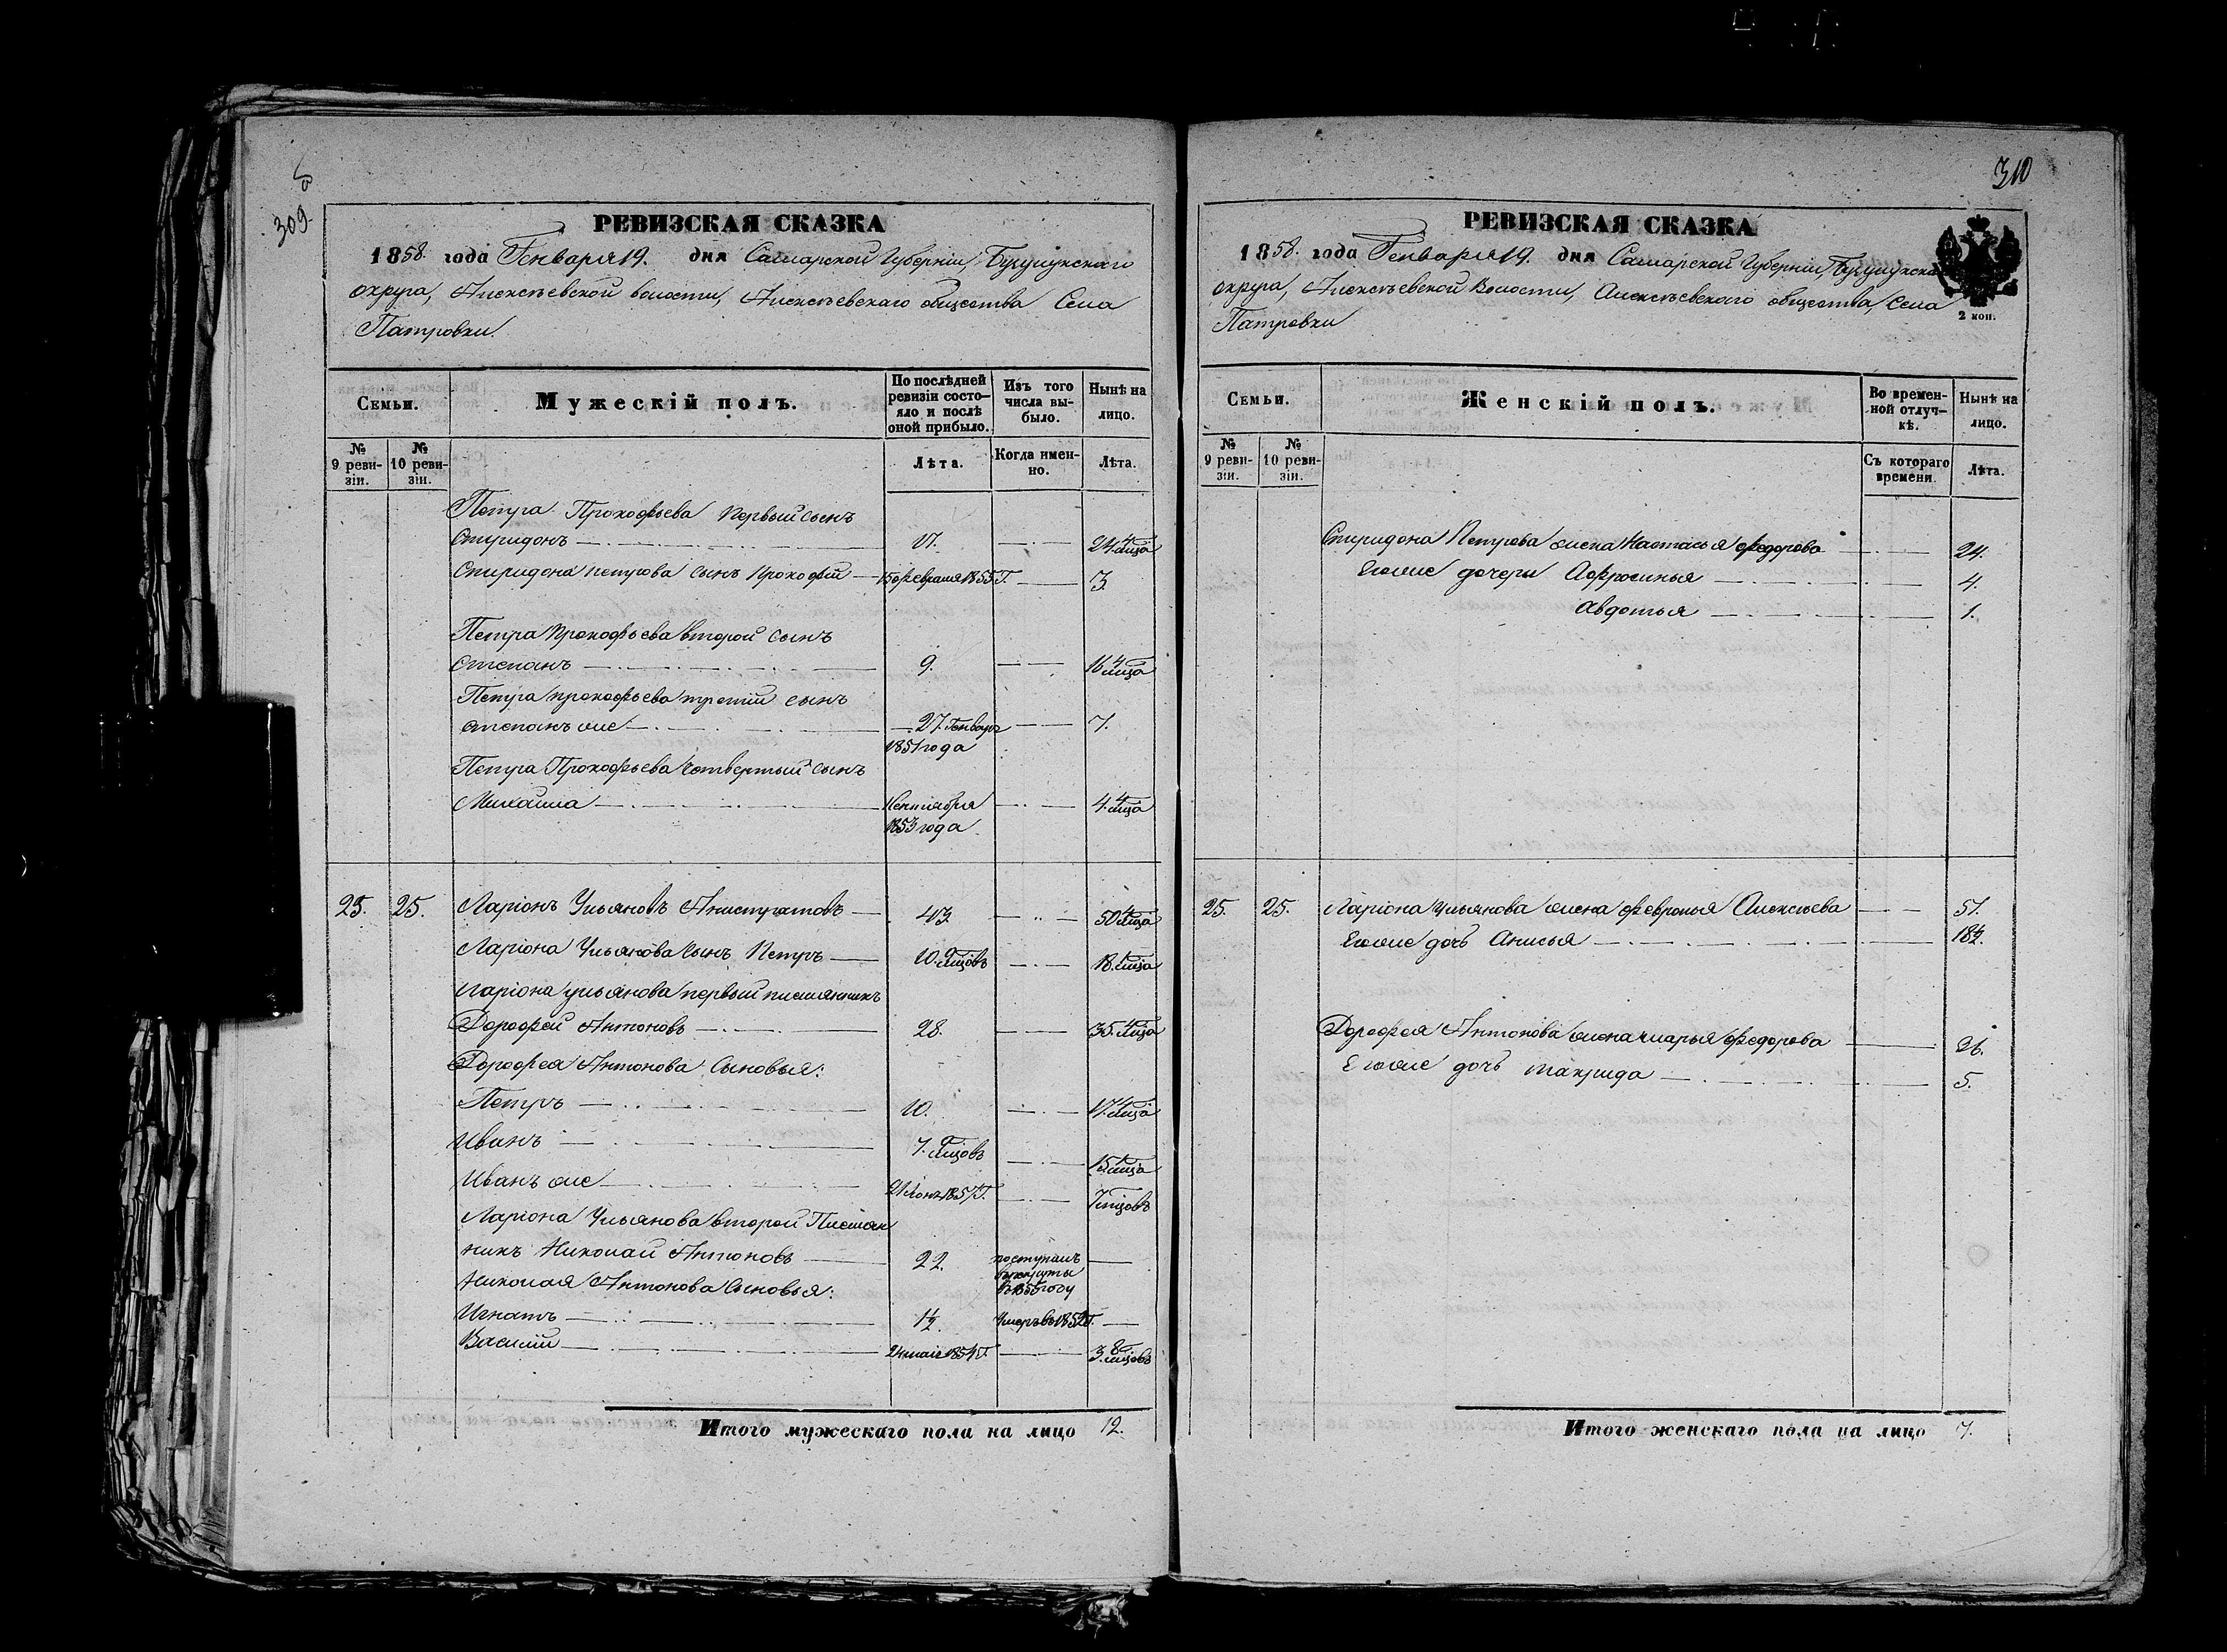 309
РЕВИЗСКАЯ СКАЗКА
1858. года Генваря 19. дня Самарской Губерніи, Бузулукскаго
округа, Алексѣевской волости, Алексѣевскаго общества Села
Патровки.
Семьи.
Мужескій полъ.
По послѣдней ревизіи состо-
яло и послѣ
оной прибыло.
Изъ того
числа вы-
было.
Нынѣ на
лицо.
№
9 реви-
зіи.
№
10 реви-
зіи.
Лѣта.
Когда имен-
но.
Лѣта.
Петра Прокофьева первый сынъ
Спиридонъ 17. 24. 4 мѣсяца
Спиридона Петрова сынъ Прокофій 15 февраля 1855 г. 3.
Петра Прокофьева второй сынъ
Степанъ 9. 16. 4 мѣсяца
Петра Прокофьева третій сынъ
Степанъ же 27. Генваря 7.
1851 года
Петра Прокофьева четвертый сынъ
Михайла Сентября 4. 4 мѣсяца
1853 года
25. 25. Ларіонъ Ульяновъ Анистратовъ 43 50. 4 мѣсяца
Ларіона Ульянова сынъ Петръ 10. 18.
Ларіона Ульянова первый племянникъ
Дорофей Антоновъ 28. 35. 4 мѣсяца
Дорофея Антонова сыновья:
Петръ 10. 17. 4 мѣсяца
Иванъ 7. 15.
Иванъ же 21 1857 г. 7 мѣсяцовъ
Ларіона Ульянова второй племян
никъ Николай Антоновъ 22. поступилъ
въ рекруты
въ 1855 году
Николая Антонова сыновья:
Игнатъ 1/2. Умеръ въ 1852 г.
Василій 24 мая 1854 г. 3. 8 мѣсяцовъ
Итого мужескаго пола на лицо 12.
310
РЕВИЗСКАЯ СКАЗКА
1858. года Генваря 19. дня Самарской Губерніи, Бузулукска
округа, Алексѣевской Волости, Алексѣевскаго общества, села
Патровки
2 коп.
Семьи.
Женскій полъ.
Во времен-
ной отлуч-
кѣ.
Нынѣ на
лицо.
№
9 реви-
зіи.
№
10 реви-
зіи.
Съ котораго
времени.
Лѣта.
Спиридона Петрова жена Настасья Федорова 24.
Его же дочери Афросинья 4.
Авдотья 1.
25. 25. Ларіона Ульянова жена Февронья Алексѣева 51.
Его же дочь Анисья 18 1/2.
Дорофея Антонова жена Марья Федорова 36.
Его же дочь Макрида 5.
Итого женскаго пола на лицо 7.